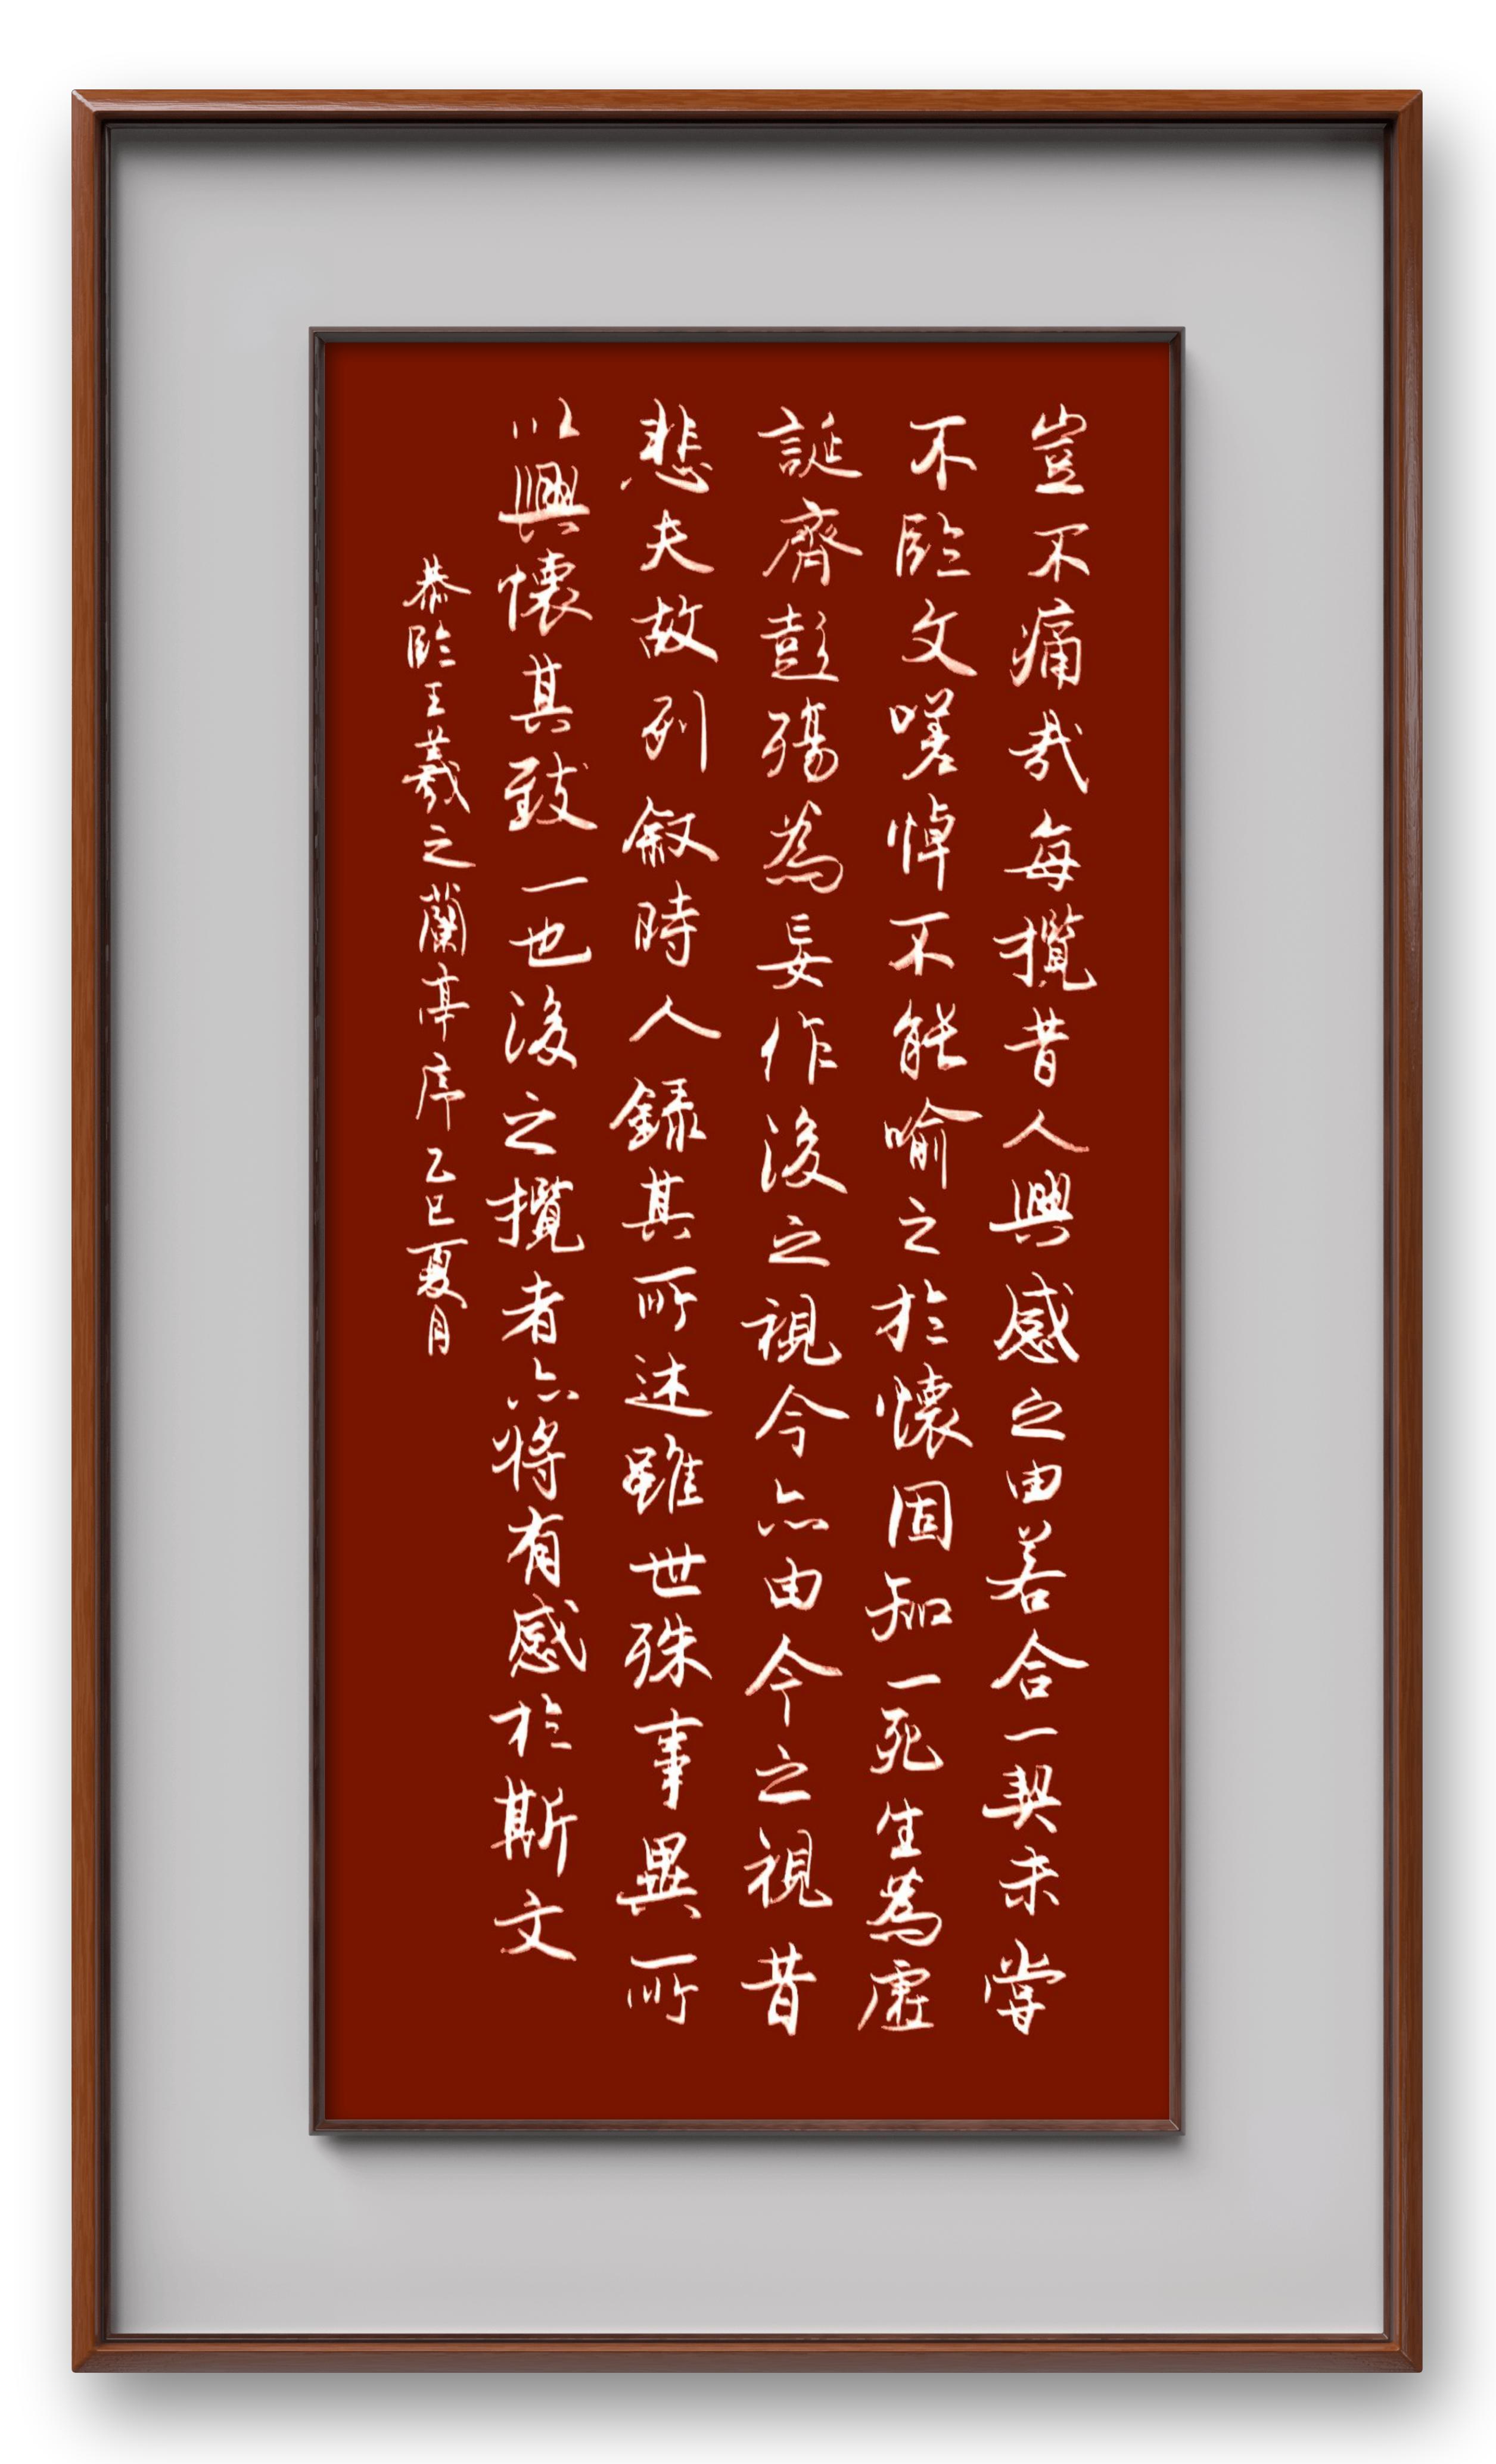 豈不痛哉每攬昔人興感之由若合一契未嘗
不臨文嗟悼不能喻之於懷固知一死生為虛
誕齊彭殤為妄作後之視今亦由今之視昔
悲夫故列敘時人錄其所述雖世殊事異所
以興懷其致一也後之攬者亦將有感於斯文
恭臨王羲之蘭亭序乙巳夏月